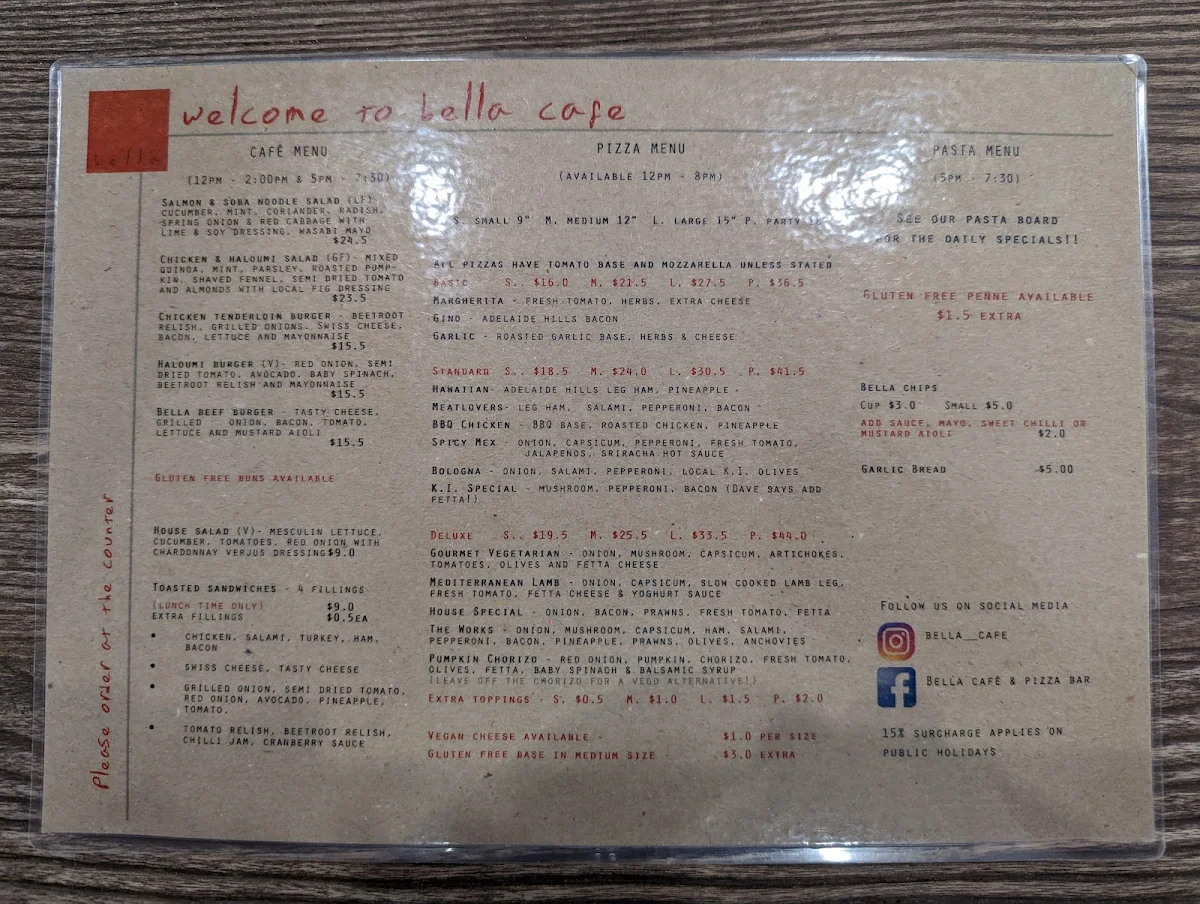 welcome to bella cafe
bella
Please order at the counter
CAFÉ MENU
(12PM - 2:00PM & 5PM - 7:30)
SALMON & SOBA NOODLE SALAD (LF)
CUCUMBER, MINT, CORIANDER, RADISH,
SPRING ONION & RED CABBAGE WITH
LIME & SOY DRESSING, WASABI MAYO
$24.5
CHICKEN & HALOUMI SALAD (GF)- MIXED
QUINOA, MINT, PARSLEY, ROASTED PUMP-
KIN, SHAVED FENNEL, SEMI DRIED TOMATO
AND ALMONDS WITH LOCAL FIG DRESSING
$23.5
CHICKEN TENDERLOIN BURGER - BEETROOT
RELISH, GRILLED ONIONS, SWISS CHEESE,
BACON, LETTUCE AND MAYONNAISE
$15.5
HALOUMI BURGER (V)- RED ONION, SEMI
DRIED TOMATO, AVOCADO, BABY SPINACH,
BEETROOT RELISH AND MAYONNAISE
$15.5
BELLA BEEF BURGER - TASTY CHEESE,
GRILLED ONION, BACON, TOMATO,
LETTUCE AND MUSTARD AIOLI
$15.5
GLUTEN FREE BUNS AVAILABLE
HOUSE SALAD (V)- MESCULIN LETTUCE,
CUCUMBER, TOMATOES, RED ONION WITH
CHARDONNAY VERJUS DRESSING$9.0
TOASTED SANDWICHES - 4 FILLINGS
(LUNCH TIME ONLY) $9.0
EXTRA FILLINGS $0.5EA
• CHICKEN, SALAMI, TURKEY, HAM,
BACON
• SWISS CHEESE, TASTY CHEESE
• GRILLED ONION, SEMI DRIED TOMATO,
RED ONION, AVOCADO, PINEAPPLE,
TOMATO.
• TOMATO RELISH, BEETROOT RELISH,
CHILLI JAM, CRANBERRY SAUCE
PIZZA MENU
(AVAILABLE 12PM - 8PM)
S. SMALL 9" M. MEDIUM 12" L. LARGE 15" P. PARTY
ALL PIZZAS HAVE TOMATO BASE AND MOZZARELLA UNLESS STATED
BASIC S.. $16.0 M. $21.5 L. $27.5 P. $36.5
MARGHERITA - FRESH TOMATO, HERBS, EXTRA CHEESE
GINO - ADELAIDE HILLS BACON
GARLIC - ROASTED GARLIC BASE, HERBS & CHEESE
STANDARD S.. $18.5 M. $24.0 L. $30.5 P. $41.5
HAWAIIAN- ADELAIDE HILLS LEG HAM, PINEAPPLE -
MEATLOVERS- LEG HAM, SALAMI, PEPPERONI, BACON
BBQ CHICKEN - BBQ BASE, ROASTED CHICKEN, PINEAPPLE
SPICY MEX - ONION, CAPSICUM, PEPPERONI, FRESH TOMATO,
JALAPENOS, SRIRACHA HOT SAUCE
BOLOGNA - ONION, SALAMI, PEPPERONI, LOCAL K.I. OLIVES
K.I. SPECIAL - MUSHROOM, PEPPERONI, BACON (DAVE SAYS ADD
FETTA!)
DELUXE S.. $19.5 M. $25.5 L. $33.5 P. $44.0
GOURMET VEGETARIAN - ONION, MUSHROOM, CAPSICUM, ARTICHOKES,
TOMATOES, OLIVES AND FETTA CHEESE
MEDITERRANEAN LAMB - ONION, CAPSICUM, SLOW COOKED LAMB LEG,
FRESH TOMATO, FETTA CHEESE & YOGHURT SAUCE
HOUSE SPECIAL - ONION, BACON, PRAWNS, FRESH TOMATO, FETTA
THE WORKS - ONION, MUSHROOM, CAPSICUM, HAM, SALAMI,
PEPPERONI, BACON, PINEAPPLE, PRAWNS, OLIVES, ANCHOVIES
PUMPKIN CHORIZO - RED ONION, PUMPKIN, CHORIZO, FRESH TOMATO,
OLIVES, FETTA, BABY SPINACH & BALSAMIC SYRUP
(LEAVE OFF THE CHORIZO FOR A VEGO ALTERNATIVE!)
EXTRA TOPPINGS - S. $0.5 M. $1.0 L. $1.5 P. $2.0
VEGAN CHEESE AVAILABLE - $1.0 PER SIZE
GLUTEN FREE BASE IN MEDIUM SIZE - $3.0 EXTRA
PASTA MENU
(5PM - 7:30)
SEE OUR PASTA BOARD
FOR THE DAILY SPECIALS!!
GLUTEN FREE PENNE AVAILABLE
$1.5 EXTRA
BELLA CHIPS
CUP $3.0 SMALL $5.0
ADD SAUCE, MAYO, SWEET CHILLI OR
MUSTARD AIOLI $2.0
GARLIC BREAD $5.00
FOLLOW US ON SOCIAL MEDIA
BELLA__CAFE
BELLA CAFÉ & PIZZA BAR
15% SURCHARGE APPLIES ON
PUBLIC HOLIDAYS